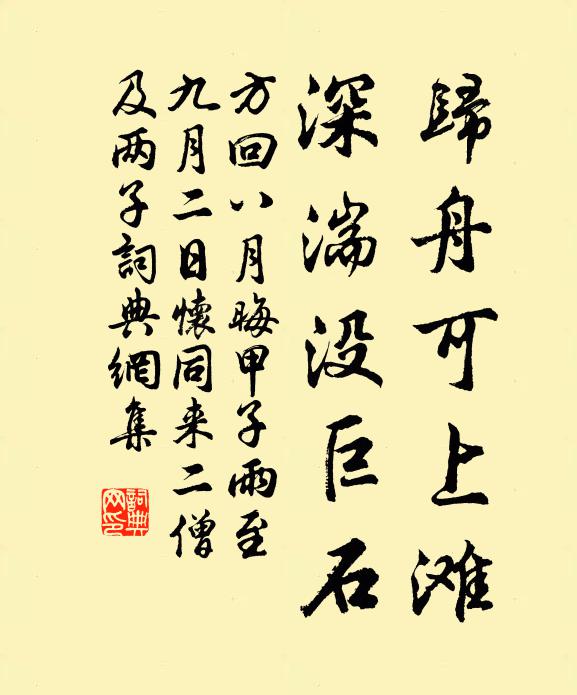 歸舟可上滩
深湍没巨石
方回八月晦甲子雨至
九月二日懷同来二僧
及两子詞典網集
詞典
网印